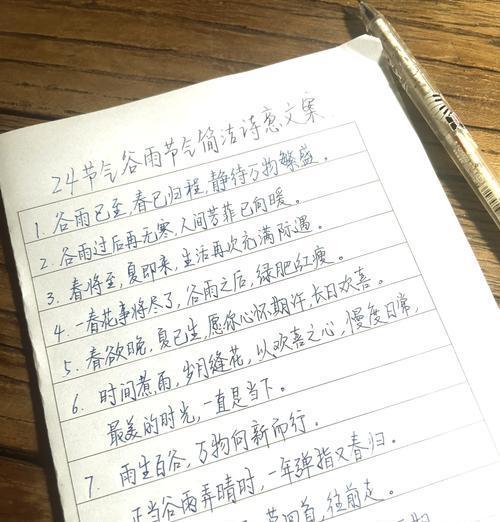 24节气谷雨节气简洁诗意文案
1. 谷雨已至,春已归程,静待万物繁盛。
2. 谷雨过后再无寒,人间芳菲已向暖。
3. 春将至,夏即来,生活再次充满际遇。
4. 一春花事将尽了,谷雨之后,绿肥红瘦。
5. 春欲晚,夏已生,愿你心怀期许,长日欢喜。
6. 时间煮雨,岁月缝花,以欢喜之心,慢度日常,
最美的时光,一直是当下。
7. 雨生百谷,万物向新而行。
正当谷雨弄晴时,一年弹指又春归。
回首,往前走。